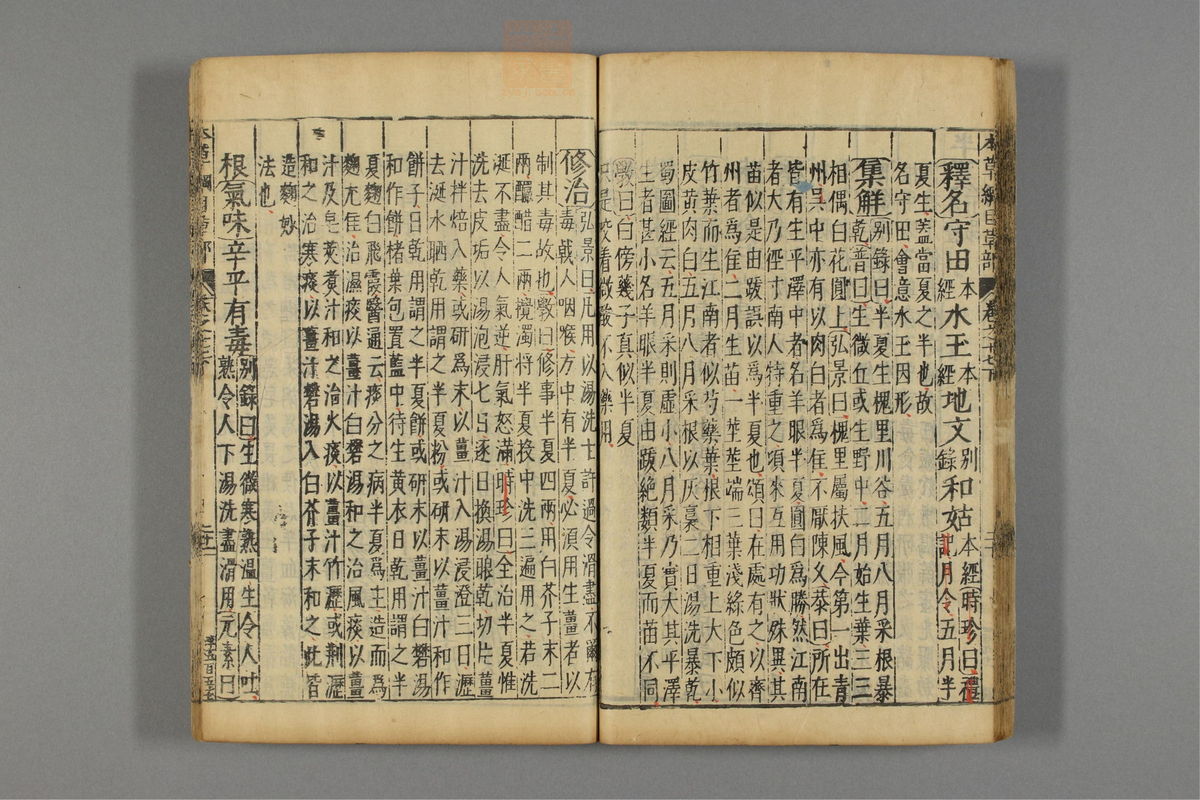 本草綱目草部 卷之十七下 二十
釋名 守田本經 水玉本經 地文別錄 和姑本經 時珍曰禮
記月令五月半
夏生蓋當夏之半也故
名守田會意水玉因形
集解 別錄曰半夏生槐里川谷五月八月采根暴
乾普曰生微丘或生野中二月始生葉三三
相偶白花圓上弘景曰槐里屬扶風今第一出青
州吳中亦有以肉白者為佳不厭陳久恭曰所在
皆有生平澤中者名羊眼半夏圓白為勝然江南
者大乃徑寸南人特重之頃來互用功狀殊異其
苗似是由跋誤以為半夏也頌曰在處有之以齊
州者為佳二月生苗一莖莖端三葉淺綠色頗似
竹葉而生江南者似芍藥葉根下相重上大下小
皮黃肉白五月八月采根以灰裛二日湯洗暴乾
蜀圖經云五月采則虛小八月采乃實大其平澤
生者甚小名羊眼半夏由跋絕類半夏而苗不同
斅曰白傍䕲子真似半夏
只是咬着微酸不入藥用
修治 弘景曰凡用以湯洗十許過令滑盡不爾有
毒戟人咽喉方中有半夏必須用生薑者以
制其毒故也斅曰修事半夏四兩用白芥子末二
兩釅醋二兩攪濁將半夏投中洗三遍用之若洗
涎不盡令人氣逆肝氣怒滿時珍曰今治半夏惟
洗去皮垢以湯泡浸七日逐日換湯眼乾切片薑
汁拌焙入藥或研為末以薑汁入湯浸澄三日瀝
去涎水晒乾用謂之半夏粉或研末以薑汁和作
餅子日乾用謂之半夏餅或研末以薑汁白礬湯
和作餅楮葉包置籃中待生黃衣日乾用謂之半
夏麴白飛霞醫通云痰分之病半夏為主造而為
麴尤佳治濕痰以薑汁白礬湯和之治風痰以薑
汁及皂莢煮汁和之治火痰以薑汁竹瀝或荊瀝
和之治寒痰以薑汁礬湯入白芥子末和之此皆
造麴妙
法也
根 氣味辛平有毒 別錄曰生微寒熟溫生令人吐
熟令人下湯洗盡滑用元素曰